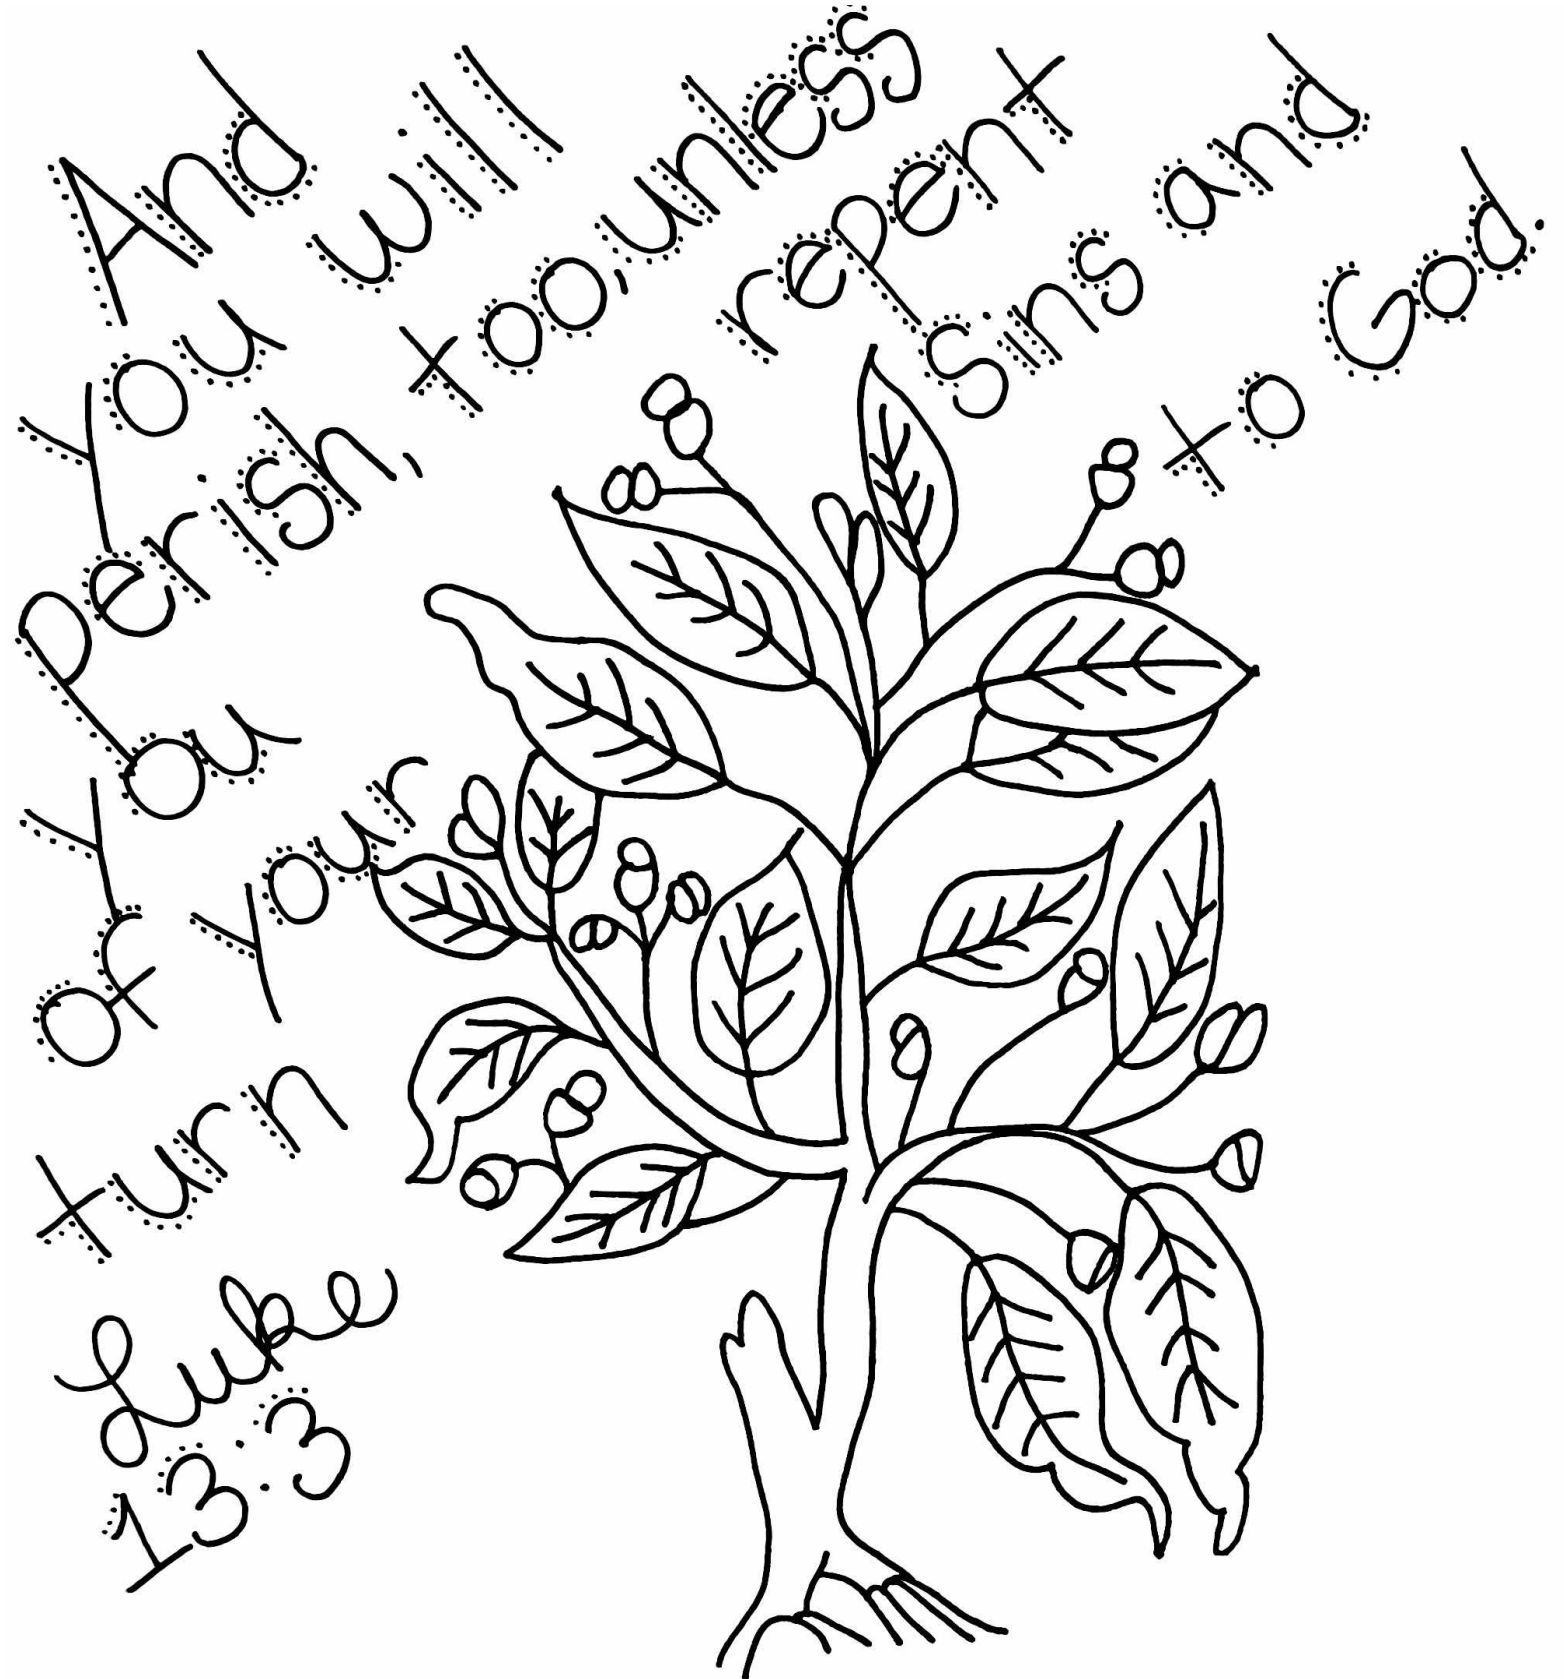 And
You will
Perish, too, unless
You repent
of your Sins and
turn to God.
Luke
13:3